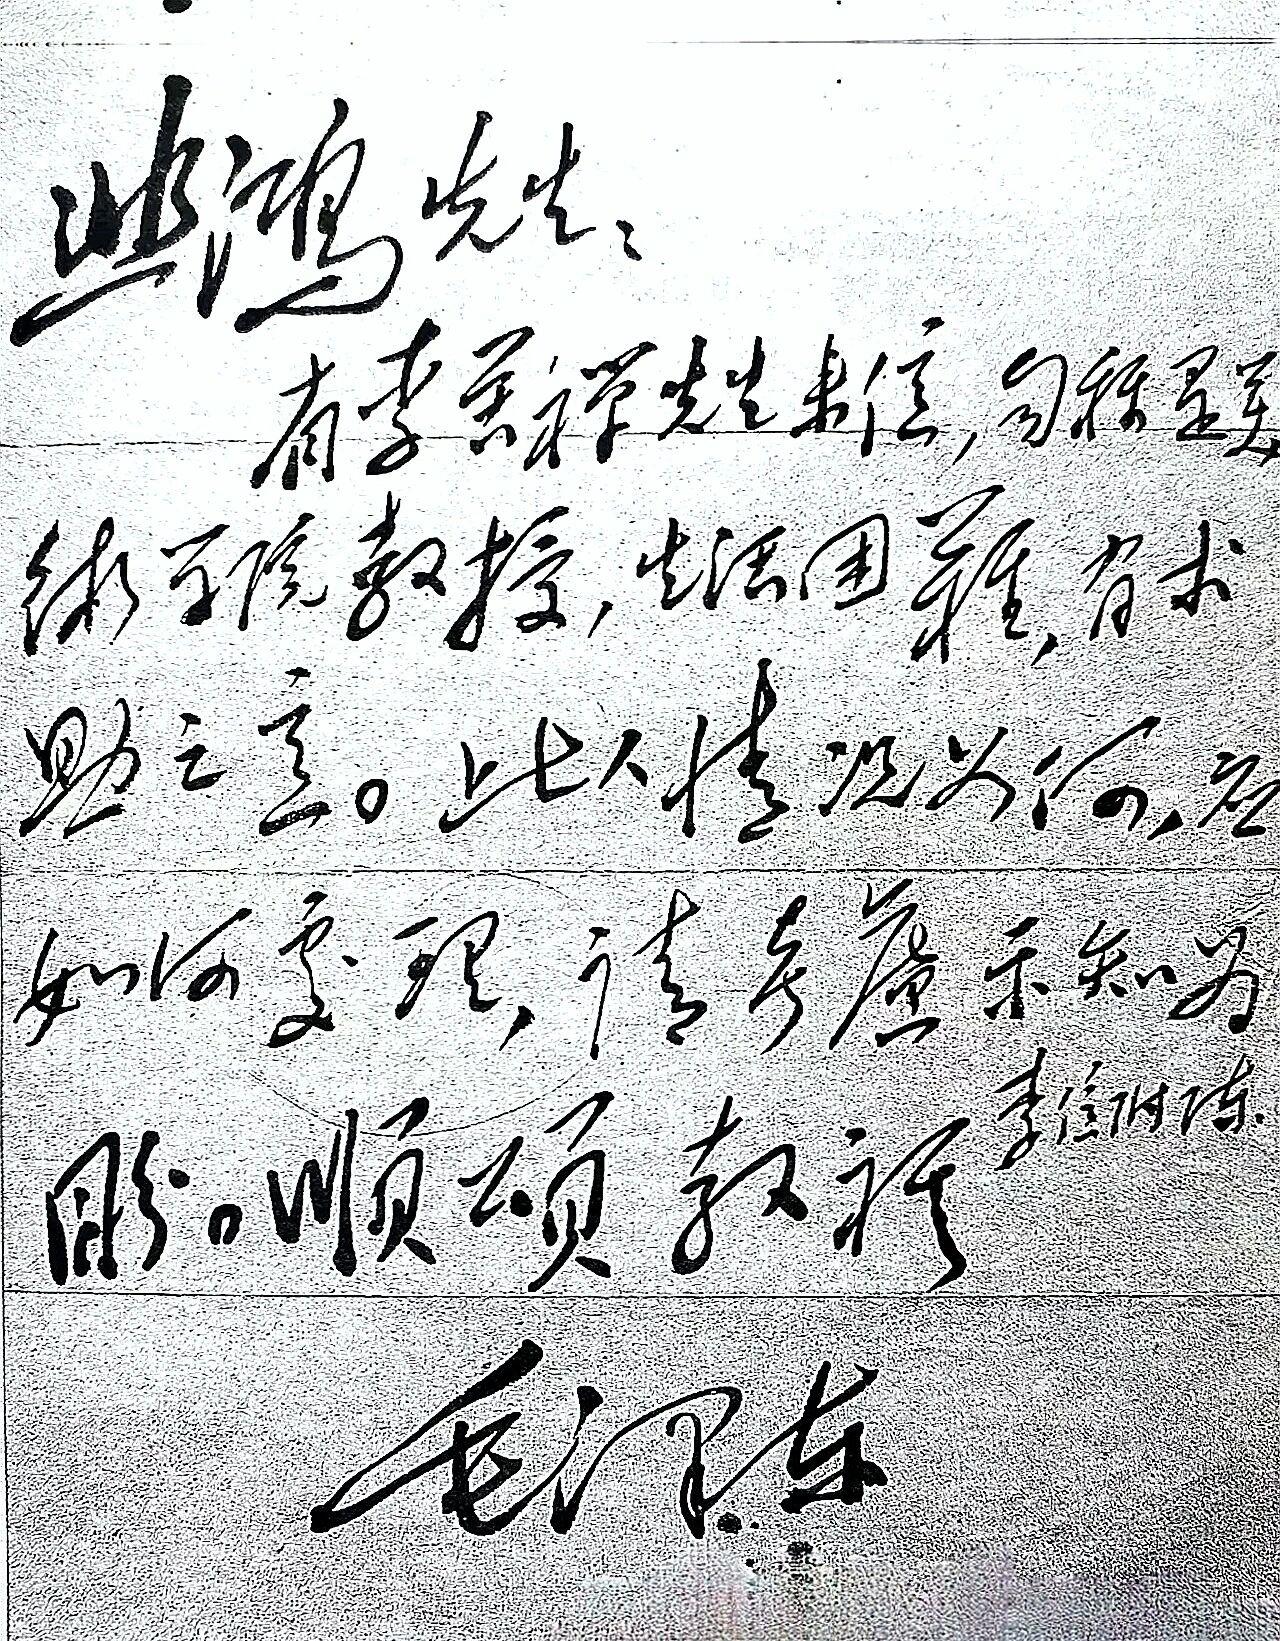 悲鸿先生：
有李苦禅先生来信，自称是美
術学院教授，生活困難，有求
助之意。此人情况如何，应
如何處理，请考慮示知为
盼。顺颂教祺
李信附陈
毛泽东